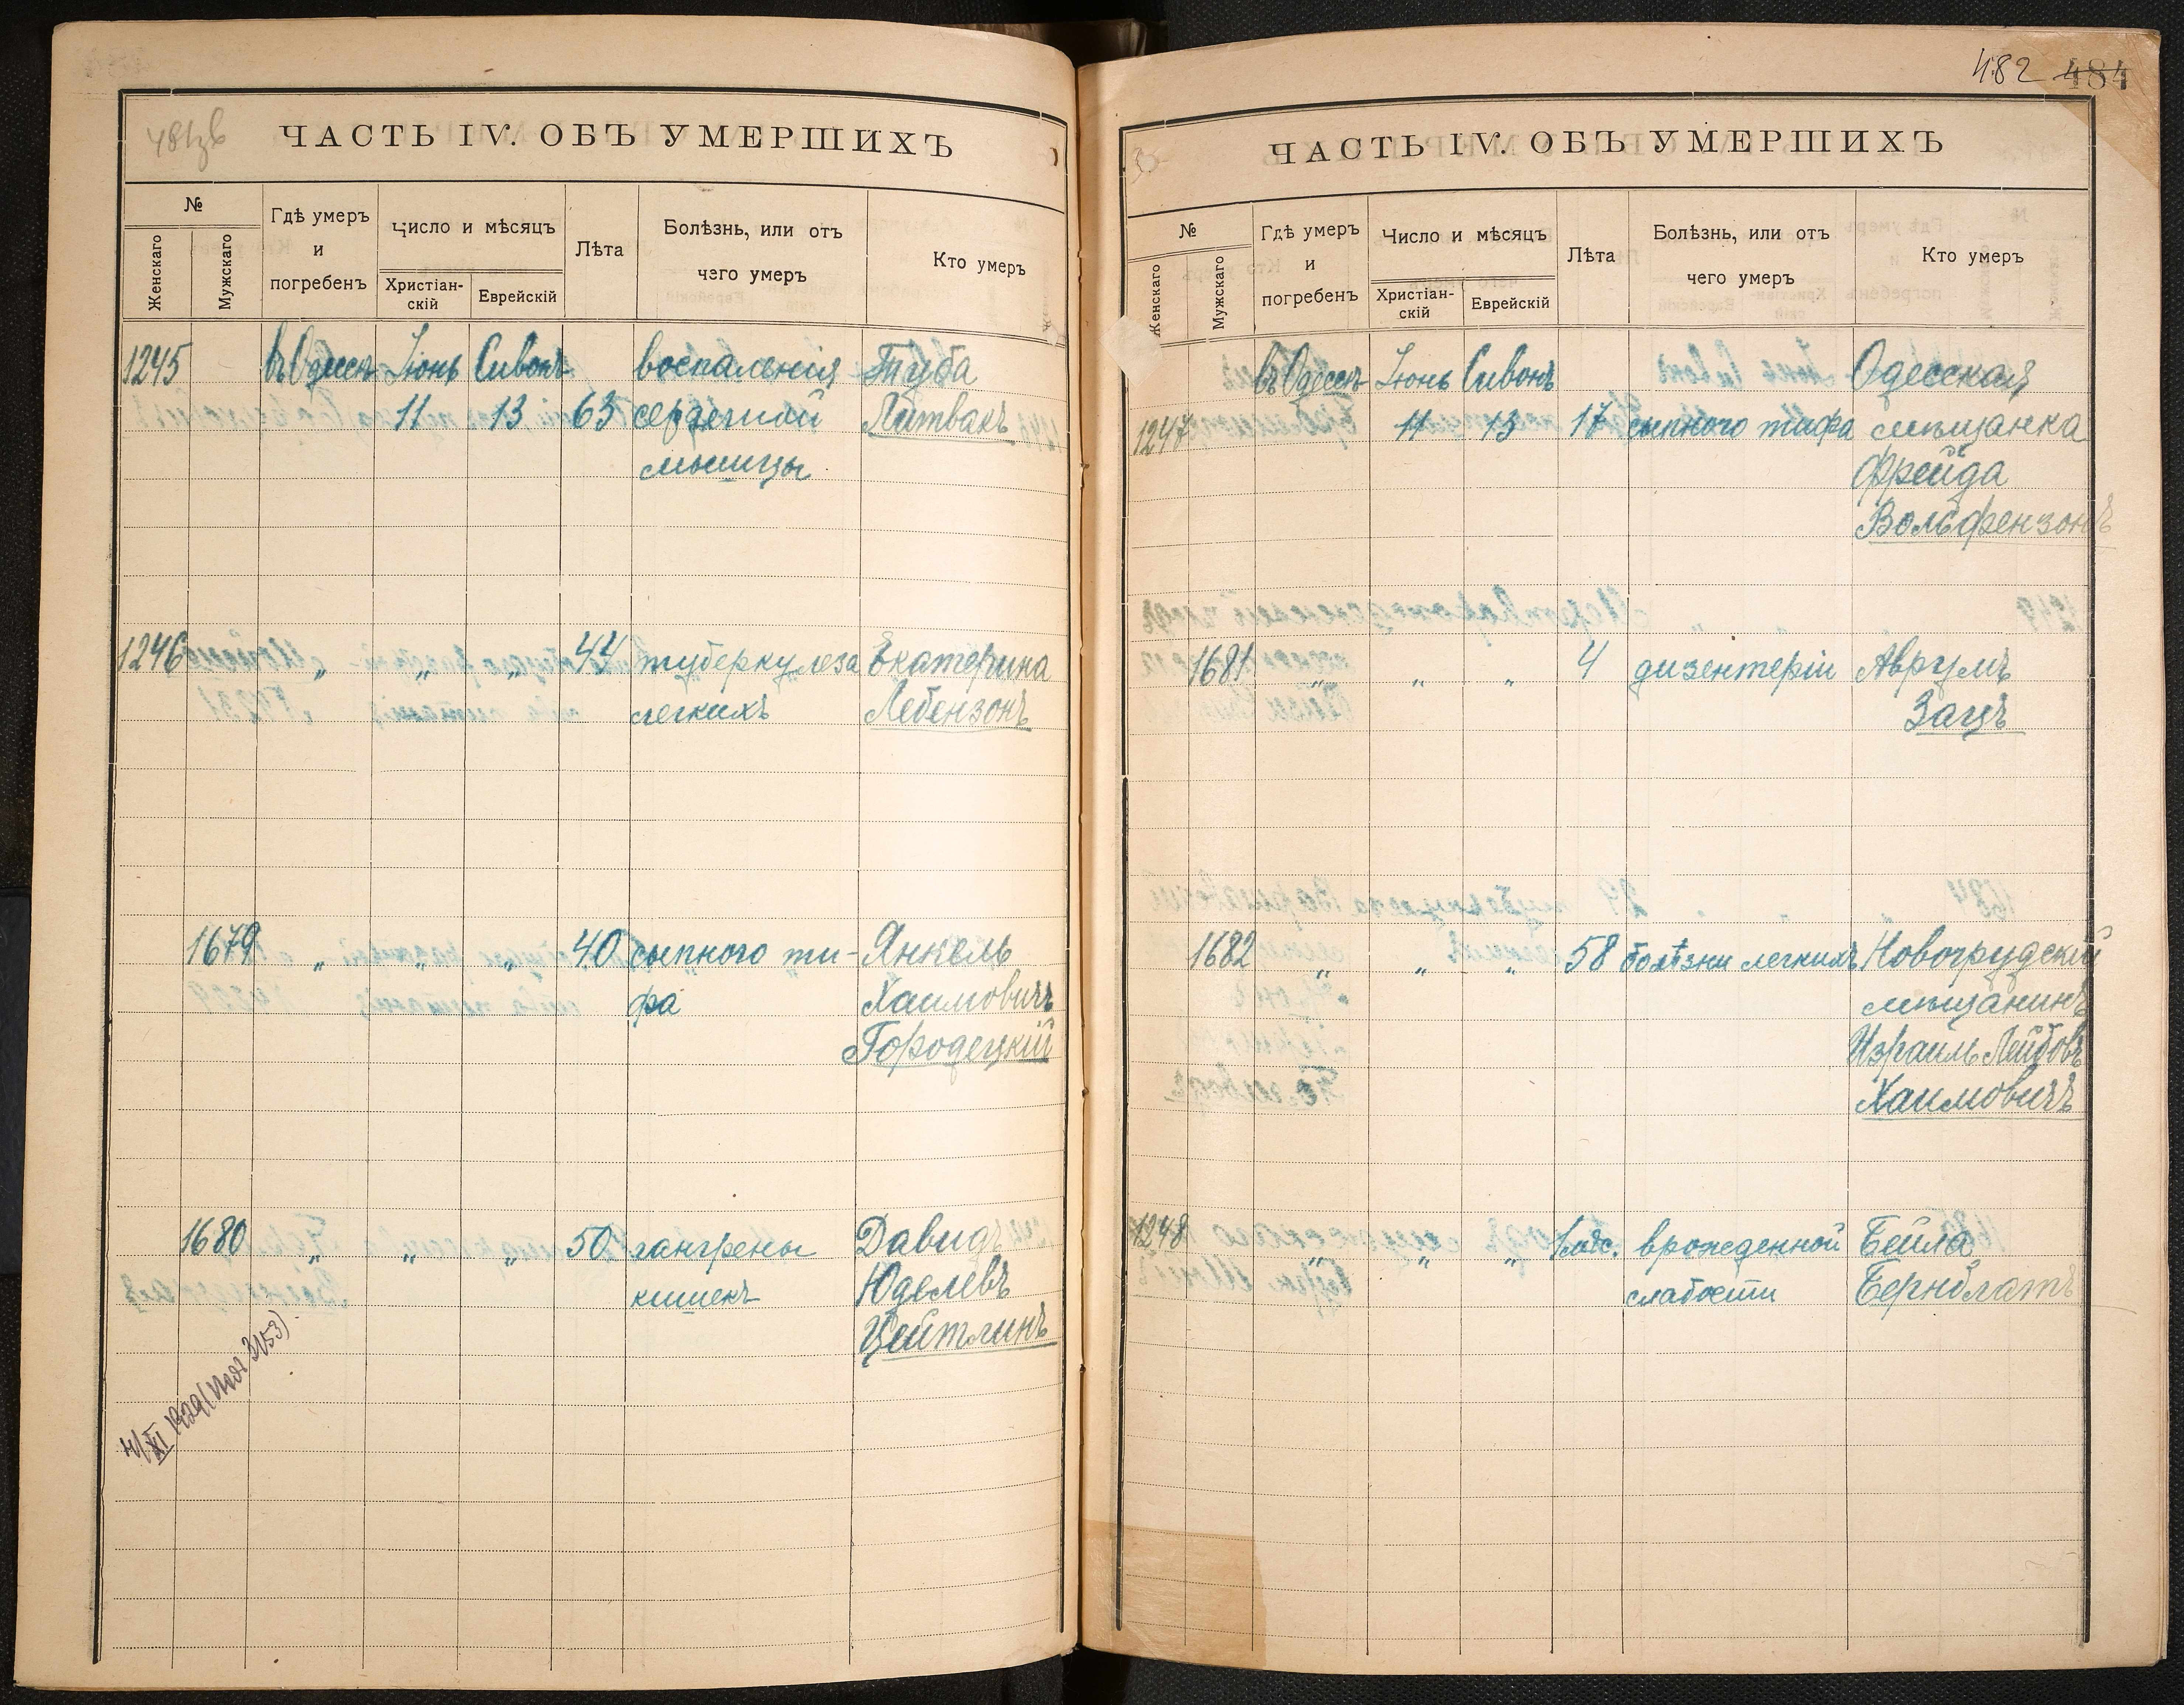 ЧАСТЬ IV. ОБЪ УМЕРШИХЪ
№
Женскаго
Мужскаго
Гдѣ умеръ
и
погребенъ
Число и мѣсяцъ
Христіан-
скій
Еврейскій
Лѣта
Болѣзнь, или отъ
чего умеръ
Кто умеръ
1245 въ Одессѣ Іюнь Сивонъ воспаленія Туба
11 13 63 сердечной Литвакъ
мышцы
1246 „ „ „ 44 туберкулеза Екатерина
легкихъ Лебензонъ
1679 „ „ „ 40 сыпного ти- Янкель
фа Хаимовичъ
Городецкій
1680 „ „ „ 50 гангрены Давидъ
кишекъ Юделевъ
Цейтлинъ
482 484
ЧАСТЬ IV. ОБЪ УМЕРШИХЪ
№
Женскаго
Мужскаго
Гдѣ умеръ
и
погребенъ
Число и мѣсяцъ
Христіан-
скій
Еврейскій
Лѣта
Болѣзнь, или отъ
чего умеръ
Кто умеръ
въ Одессѣ Іюнь Сивонъ Одесская
1247 11 13 17 сыпного тифа мѣщанка
Фрейда
Вольфензонъ
1681 „ „ „ 4 дизентеріи Аврумъ
Зацъ
1682 „ „ „ 58 болѣзни легкихъ Новогрудскій
мѣщанинъ
Израиль Лейбовъ
Хаимовичъ
1248 „ „ „ врожденной Бейла
слабости Бернблатъ